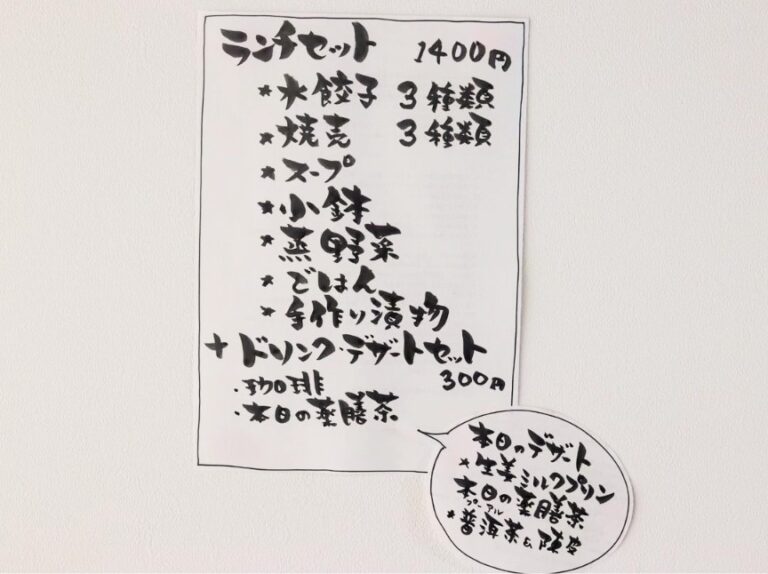 ランチセット 1400円
*水餃子 3種類
*焼売 3種類
*スープ
*小鉢
*蒸野菜
*ごはん
*手作り漬物
+ドリンク・デザートセット
300円
・珈琲
・本日の薬膳茶
本日のデザート
*生姜ミルクプリン
本日の薬膳茶
プーアル
*普洱茶&陳皮